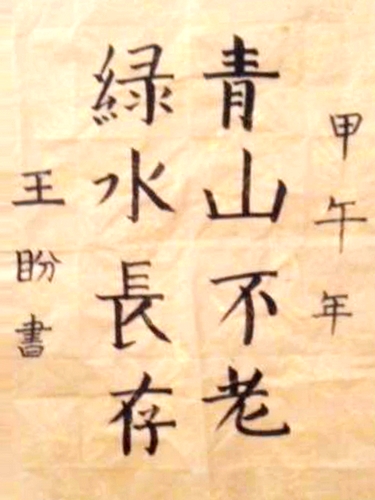 甲午年
青山不老
緑水長存
王盼書